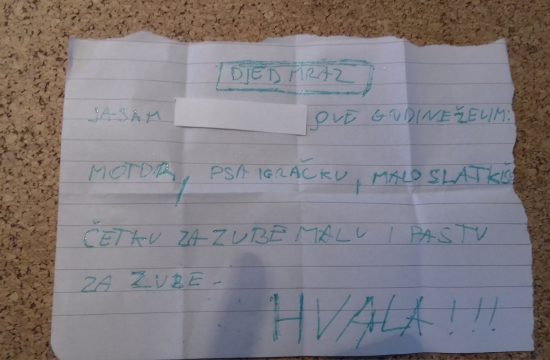 DJED MRAZ
JA SAM OVE GODINE ŽELIM:
MOTOR, PSA IGRAČKU, MALO SLATKIŠ
ČETKU ZA ZUBE MALU I PASTU
ZA ZUBE.
HVALA!!!